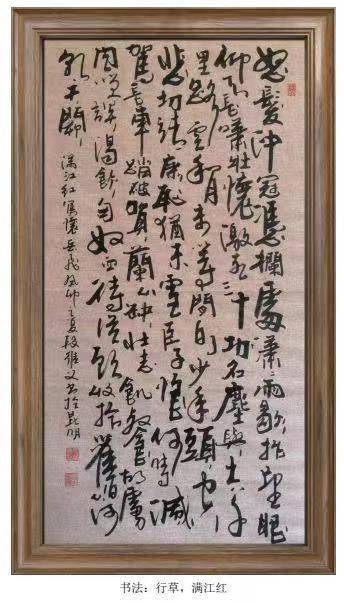 怒髮沖冠憑欄處瀟瀟雨歇抬望眼
仰天長嘯壯懷激烈三十功名塵與土八千
里路雲和月莫等閒白少年頭空
悲切靖康恥猶未雪臣子恨何時滅
駕長車踏破賀蘭山缺壯志飢餐胡虜
肉笑談渴飲匈奴血待從頭收拾舊山河
朝天闕
滿江紅寫懷岳飛卯之夏段書於昆明
书法：行草，满江红